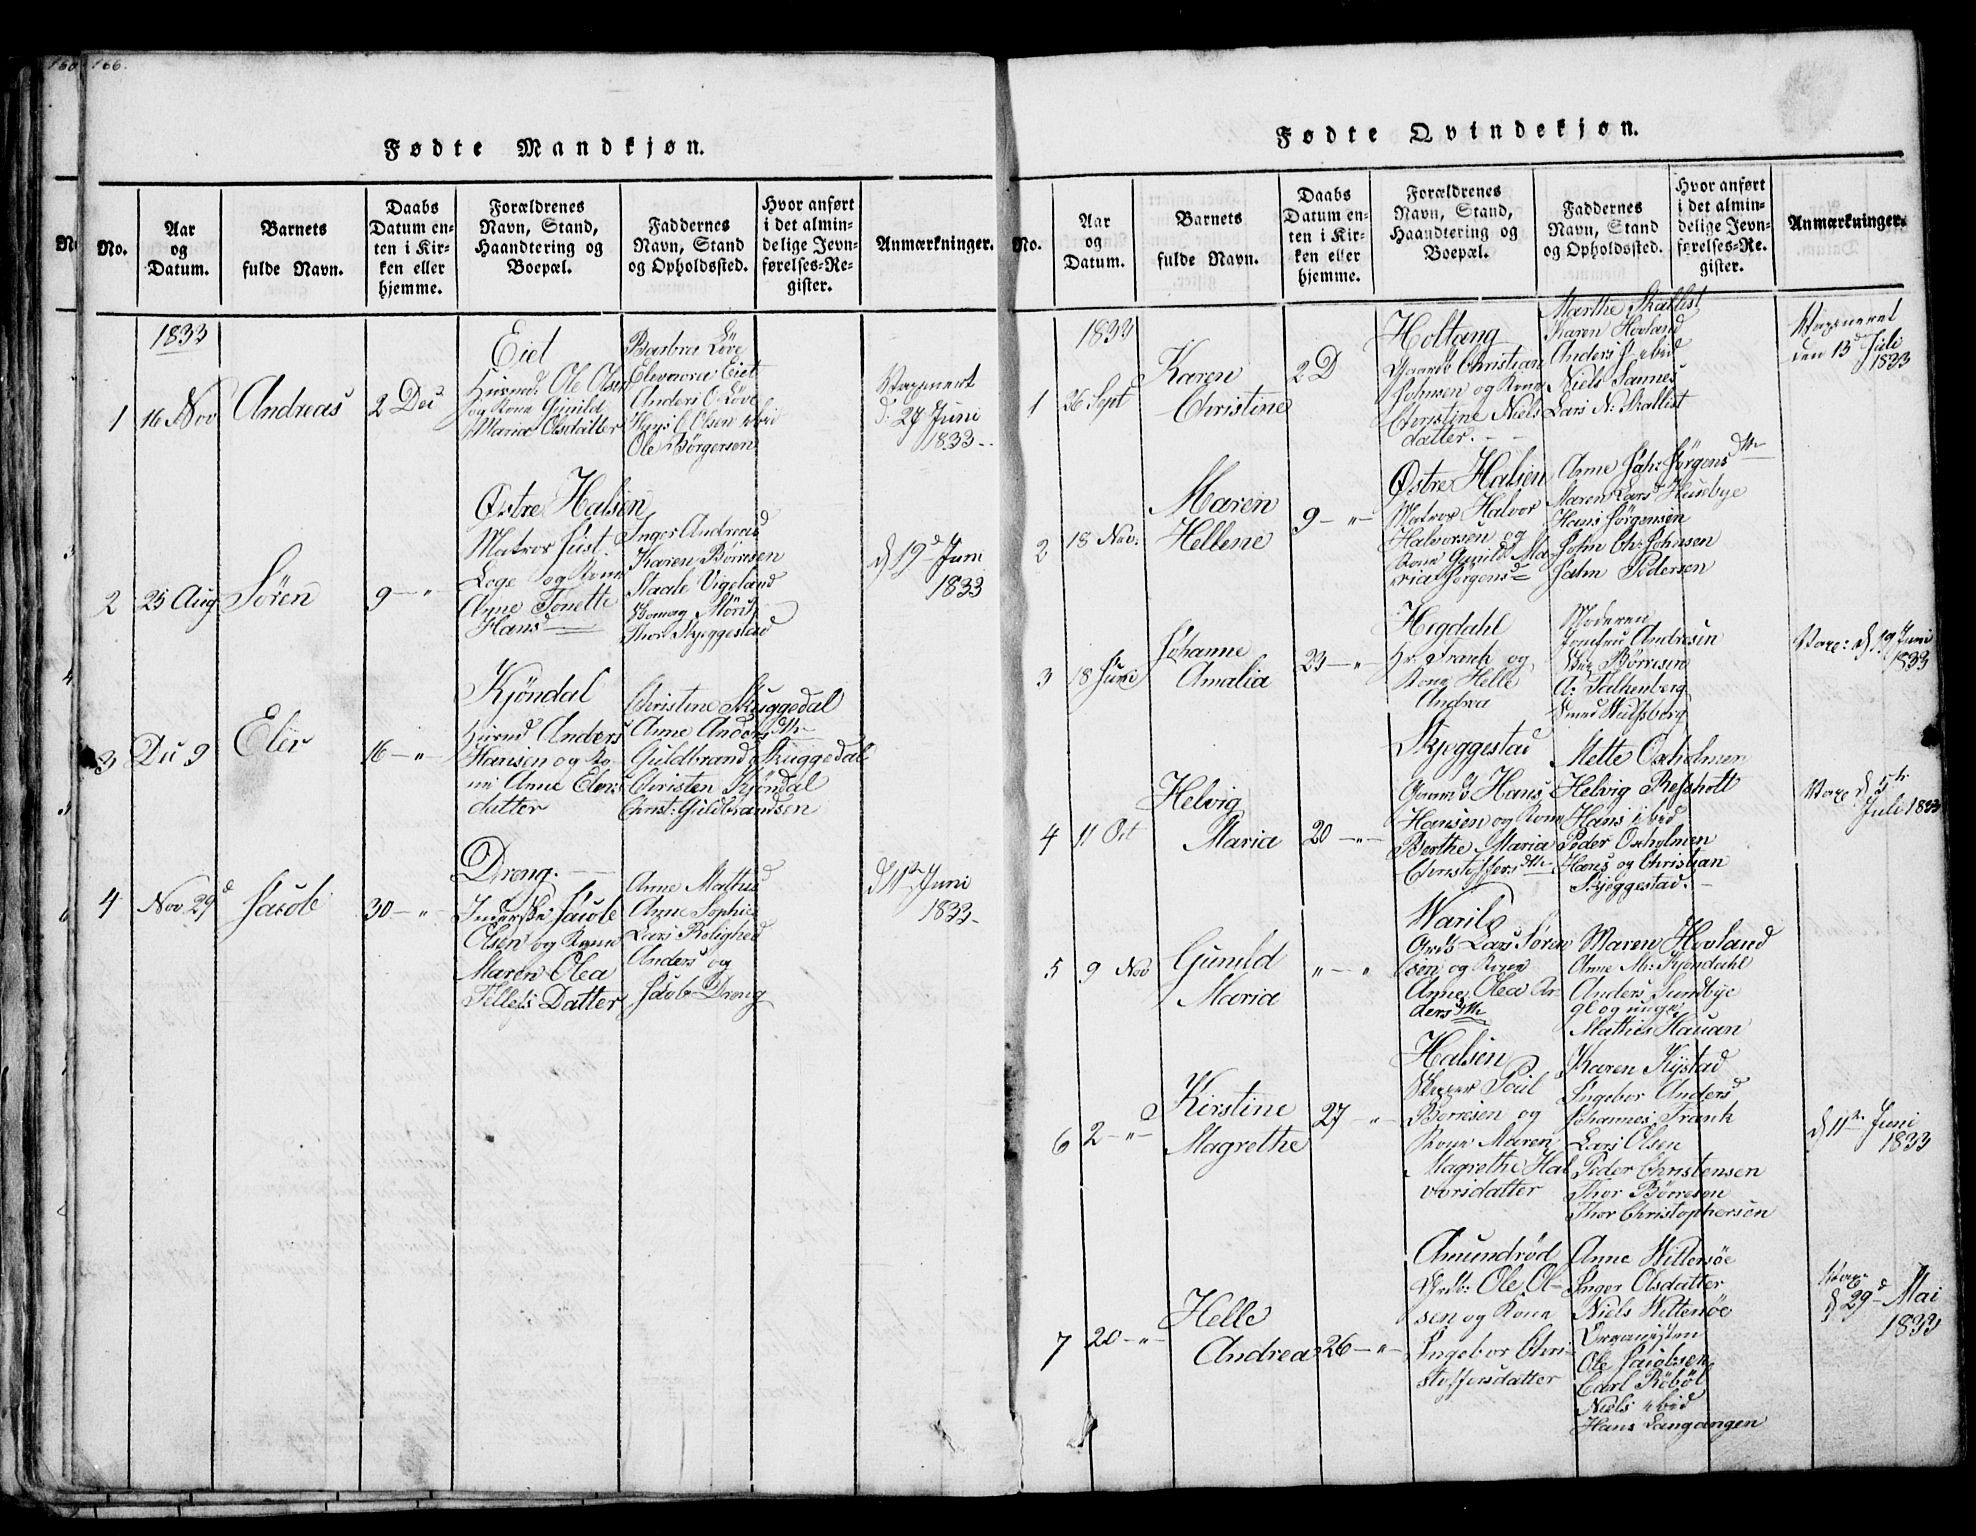 166.
Fødte Mandkjøn.
No.
Aar og Datum.
Barnets fulde Navn.
Daabs Datum enten i Kirken eller hjemme.
Forældrenes Navn, Stand, Haandtering og Boepæl.
Faddernes Navn, Stand og Opholdssted.
Hvor anført i det almindelige Jevnførelses-Register.
Anmærkninger.
1833
1
16 Nov
Andreas
2 Dec
Eid
Huusmd. Ole Olsen
og Kone Gunild
Maria Olsdatter
Barbra Löve
Eleonora Eiet
Anders O. Löve
Ole Börgersen
Vaxineret
d. 27 Juni
1833
2
25 Aug
Sören
9 — "
Østre Halsen
Matros Just
Loge og Kone
Anne Tonette
Hansd
Inger Andreasd
Karen Börresen
Staale Vigeland
Thor Skjeggestad
d 19d Juni
1833
3
Dec 9
Elev
16 — "
Kjöndal
Huusmd Anders
Hansen og Ko-
ne Anne Elevs
datter
Christine Skuggedal
Anne Andersdtr
Guldbrand Skuggedal
Christen Kjöndal
Christ: Guldbrandsen
4
Nov 29d
Jacob
30 — "
Dreng.
Inderste Jacob
Olsen og Kone
Maren Olea
Tellefs Datter
Anne Mathisd
Anne Sophie
Lars Rolighed
Anders og
Jacob Dreng
d 11te Juni
1833
Fødte Qvindekjøn.
No.
Aar og Datum.
Barnets fulde Navn.
Daabs Datum enten i Kirken eller hjemme.
Forældrenes Navn, Stand, Haandtering og Boepæl.
Faddernes Navn, Stand og Opholdssted.
Hvor anført i det almindelige Jevnførelses-Register.
Anmærkninger.
1833
1
26 Sept
Karen
Christine
2 D
Holtang
Gaardb Christian
Johnsen og Kone
Christine Niels
datter.
Marthe Skallist
Karen Hovland
Anders J ibid
Niels Sannes
Lars N. Skallist
Vaxineret
den 13d Juli
1833
2
18 Nov.
Maren
Hellene
9 — "
Østre Halsen
Matros Halvor
Halvorsen og
Kone Gunild Ma-
ria Jörgensd
Anne Jah: Jörgensdtr
Maren Larsd Huusebye
Hans Jörgensen
John Ch. Johnsen
Jahn Pedersen
3
18 Juni
Johanne
Amalia
23 — "
Hegdahl
Hr. Frank og
Kone Helle
Andrea
Moderen
Jomfru Andresen
Börresen
A: Falkenberg
Smed Wulfsberg
Vaxc: d 19 Juni
1833
4
11 Oct
Helvig
Maria
20 — "
Skjeggestad
Gaarmd. Hans
Hansen og Kone
Berthe Maria
Christoffersdtr
Mette Oxholmen
Helvig Refsholt
Hans ibid
Peder Oxholmen
Hans og Christian
Skjeggestad.
Vaxc d 5te
Juli 1833
5
9 Nov
Gunild
Maria
" — "
Warild
Grdb Lars Sören
sen og Kone
Anne Olea An-
dersdtr
Maren Hovland
Anne M: Kjöndahl
Anders Sundbye
gl og unge
Mathis Hauan
6
2 — "
Kirstine
Magrethe
27 "
Halsen
Skipper Poul
Börresen og
Kone Maren
Magrethe Hal
vorsdatter
Karen Kystad
Ingebor Andersd
Johannes Frank
Lars Olsen
Peder Christensen
Thor Börresen
Thor Christophersen
d 11te Juni
1833
7
20 — "
Helle
Andrea
26 — "
Amundröd
Grdb: Ole Ol-
sen og Kone
Ingebor Chri-
stoffersdatter
Anne Wittersöe
Inger Olsdatter
Niels Wittersöe
Organisten
Ole Jacobsen
Carl Röböl
Niels ibid
Hans Langangen
Vaxc
d 29d Mai
1833